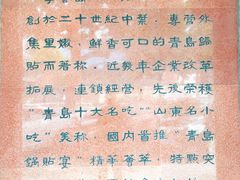 創於二十世紀中葉，專營外
焦里嫩，鮮香可口的青島鍋
貼而著称。近幾年企業改革
拓展，連鎖經營，先後榮獲
“青島十大名吃”“山東名小
吃”美称，國内首推“青島
鍋貼宴”精華薈萃，特點突